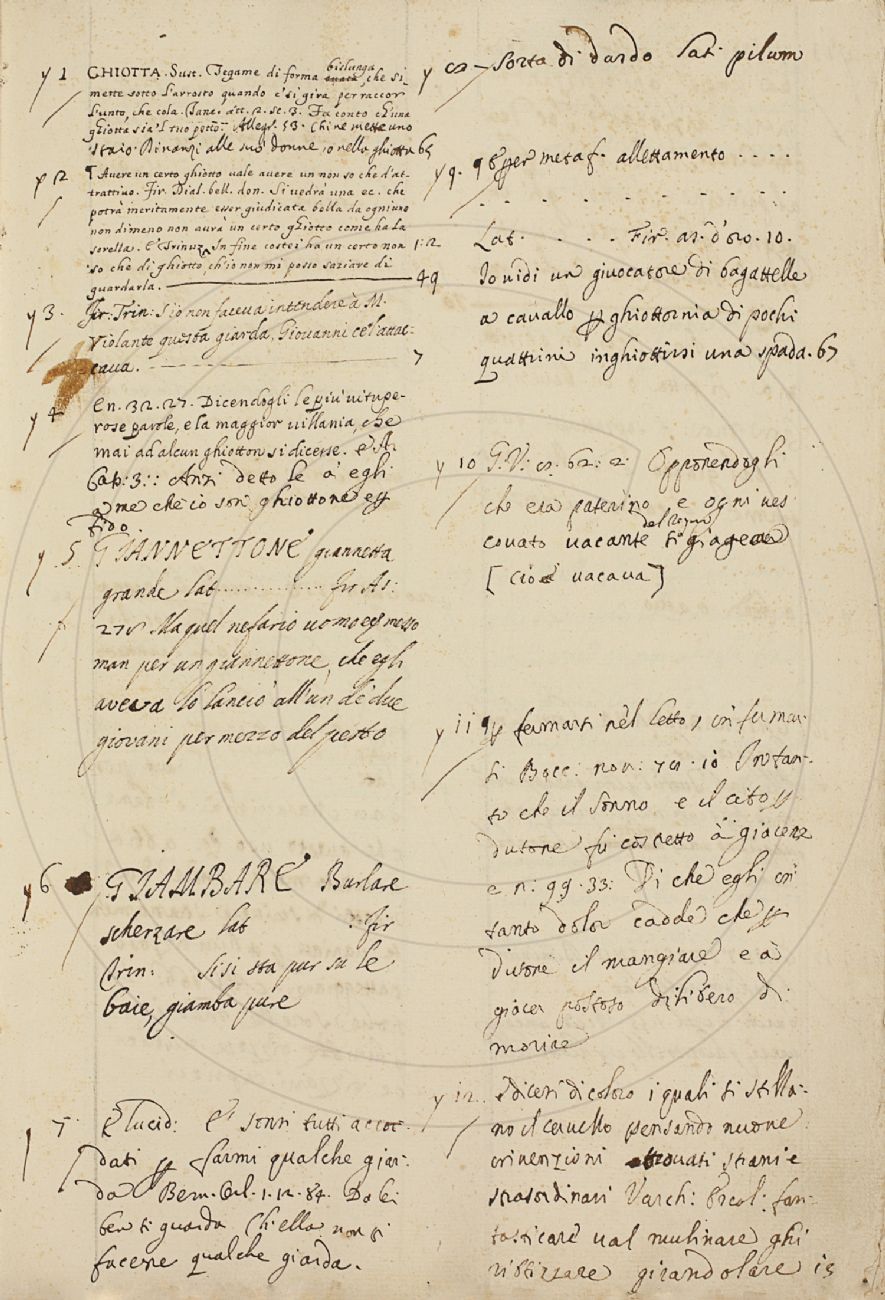 y 1 GHIOTTA. Sust. Tegame di forma bislunga, che si
mette sotto l'arrosto quando e' si gira per raccor
l'unto, che cola. Iane. att. 2. sc. 3. Fa conto ch'una
ghiotta sia 'l tuo petto. Allegr. 53. Chi ne mette uno
staio. Rinanzi alle sue donne, o nella ghiotta 65
y 2 ¶ Avere un certo ghiotto vale avere un non so che d'at-
trattivo. Fir. Dial. bell. don. Si vedrà una ec. che
potrà meritamente esser giudicata bella da ogniuno
non dimeno non aura un certo ghiotto come ha la
sorella. E Trinuz. In fine costei ha un certo non 1:2
so che di ghiotto, ch'io non mi posso saziare di
guardarla. 49
y 3. Fir. Trin: S'io non faceva intendere à M.
Violante questa giarda, Giovanni ce l'attac-
cava. 7
y 4 En. 32. 27. Dicendogli le più vitupe-
rose parole, e la maggior villania, che
mai ad alcun ghiotton si dicesse. e A.
Cap: 3:: Anzi detto le à egli
a me che io son ghiottone
y 5 GIANNETTONE giannetta
grande lat .......... fir As:
275 Ma quel nefario uomo messo
man per un giannettone, che egli
aveva lo lanciò all'un de' due
giovani per mezzo del petto
y 6 GIAMBARE Burlare
scherzare lat . fir
Trin: Si si sta pur su le
baie, giamba pure
7 E lucid: E' sonsi tutti accor-
dati farmi qualche giar-
da Bern. Orl. 1. 12. 84. Da lei
ben ti guarda Ch'ella non ti
facesse qualche giarda.
y 8 Sorta di dardo Lat. pilum
y 9. 98 per metaf. allettamento . . . .
. . . . . . . . .
Lat. . . . . . Fir. as. d'oro. 10.
Io vidi un giuocatore di bagattelle
a cavallo ghiottornia di pochi
quattrini inghiottirsi una spada. 67
y 10 G. V: 62: 2: Opponendogli
che era paterino e ogni ves-
covato vacante del regno
[ cioè vacava ]
y 11 fermarsi nel letto, infermar-
si Bocc: nov: Intan-
to che il sonno e il cibo
dutone fù costretto à giacere
e n: 99. 33: Di che egli in
tanto dolor cadde che
dutone il mangiare e à
giacer postoso diliberò di
morire
y 12. E dicesi di coloro i quali si stilla-
no il cervello pensando nuove
invenzioni trovati strani e
strasordinari Varch: Ercol: fan-
tasticare ual mulinare ghi
ribizzare girandolare is